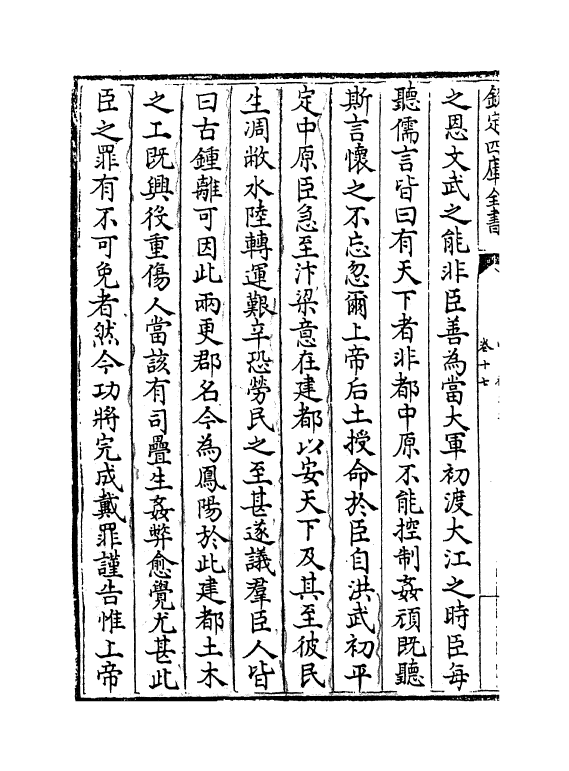 欽定四庫全書
卷十七
之恩文武之能非臣善為當大軍初渡大江之時臣每
聽儒言皆曰有天下者非都中原不能控制姦頑既聽
斯言懷之不忘忽爾上帝后土授命於臣自洪武初平
定中原臣急至汴梁意在建都以安天下及其至彼民
生凋敝水陸轉運艱辛恐勞民之至甚遂議羣臣人皆
曰古鍾離可因此兩更郡名今為鳳陽於此建都土木
之工既興役重傷人當該有司疊生姦弊愈覺尤甚此
臣之罪有不可免者然今功將完成戴罪謹告惟上帝